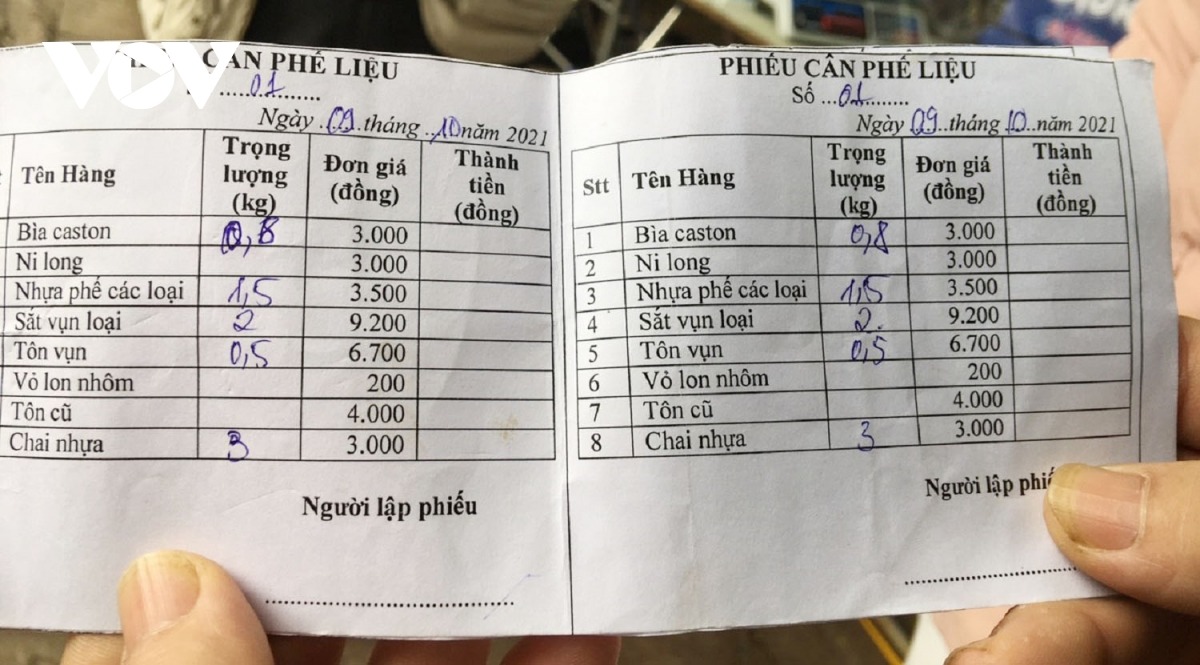 VOV
CÂN PHẾ LIỆU
.....01..........
Ngày .09.tháng ..10năm 2021
Tên Hàng Trọng lượng (kg) Đơn giá (đồng) Thành tiền (đồng)
Bìa caston 0,8 3.000
Ni long 3.000
Nhựa phế các loại 1,5 3.500
Sắt vụn loại 2 9.200
Tôn vụn 0,5 6.700
Vỏ lon nhôm 200
Tôn cũ 4.000
Chai nhựa 3 3.000
Người lập phiếu
PHIẾU CÂN PHẾ LIỆU
Số ...01.........
Ngày 09..tháng 10..năm 2021
Stt Tên Hàng Trọng lượng (kg) Đơn giá (đồng) Thành tiền (đồng)
1 Bìa caston 0,8 3.000
2 Ni long 3.000
3 Nhựa phế các loại 1,5 3.500
4 Sắt vụn loại 2. 9.200
5 Tôn vụn 0,5 6.700
6 Vỏ lon nhôm 200
7 Tôn cũ 4.000
8 Chai nhựa 3 3.000
Người lập